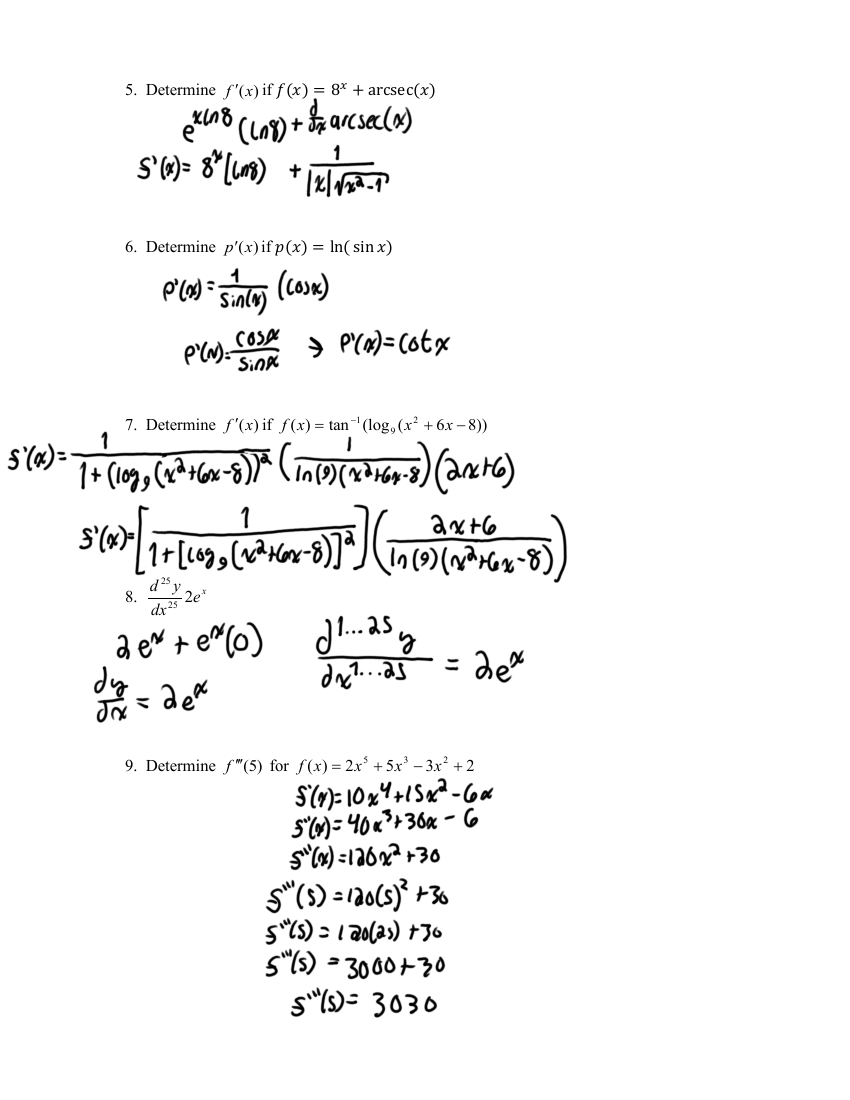 5. Determine f'(x) if f(x) = 8^x + arcsec(x)
e^{xln8} (ln8) + d/dx arcsec(x)
f'(x)= 8^x [ln8) + 1/(|x|√(x²-1))
6. Determine p'(x) if p(x) = ln( sin x)
p'(x) = 1/sin(x) (cosx)
p'(x)= cosx/sinx → p'(x)=cotx
7. Determine f'(x) if f(x) = tan⁻¹(log₉(x² + 6x − 8))
f'(x)= 1/(1+(log₉(x²+6x-8))²) (1/(ln(9)(x²+6x-8)) (2x+6)
f'(x)= [1/(1+[log₉(x²+6x-8)]²)] ((2x+6)/(ln(9)(x²+6x-8)))
8. d²⁵y/dx²⁵ 2e^x
2e^x + e^x(0)
dy/dx = 2e^x
d^{1...25}y/dx^{1...25} = 2e^x
9. Determine f'''(5) for f(x) = 2x⁵ + 5x³ − 3x² + 2
f'(x)=10x⁴+15x²-6x
f''(x)=40x³+30x-6
f'''(x)=120x²+30
f'''(5)=120(5)²+30
f'''(5)=120(25)+30
f'''(5)=3000+30
f'''(5)=3030